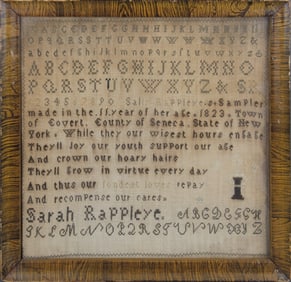 A B C D E F G G H H I J K L M N
O P Q R S S T T U V W X Y Z &
a b c d e f g h i j k l m n o p q r s t u v w x y z
A B C D E F G H I J K L M N O
P Q R S T U V W X Y Z & S R
1 2 3 4 5 6 7 8 9 0 Sally Rappleye.s. Sampler
made in the .11.year of her age.1823. Town
of Covert. County of Seneca. State of New
York. While they our wisest hours engage
They'll joy our youth support our age
And crown our hoary hairs
They'll grow in virtue every day
And thus our fondest loves repay
And recompense our cares.
Sarah Rappleye. A B C D E F G H
I J K L M N O P Q R S T U V W X Y Z